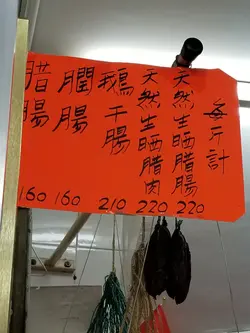 每斤計
天然生晒腊腸
220
天然生晒腊肉
220
鵝干腸
210
膶腸
160
腊腸
160